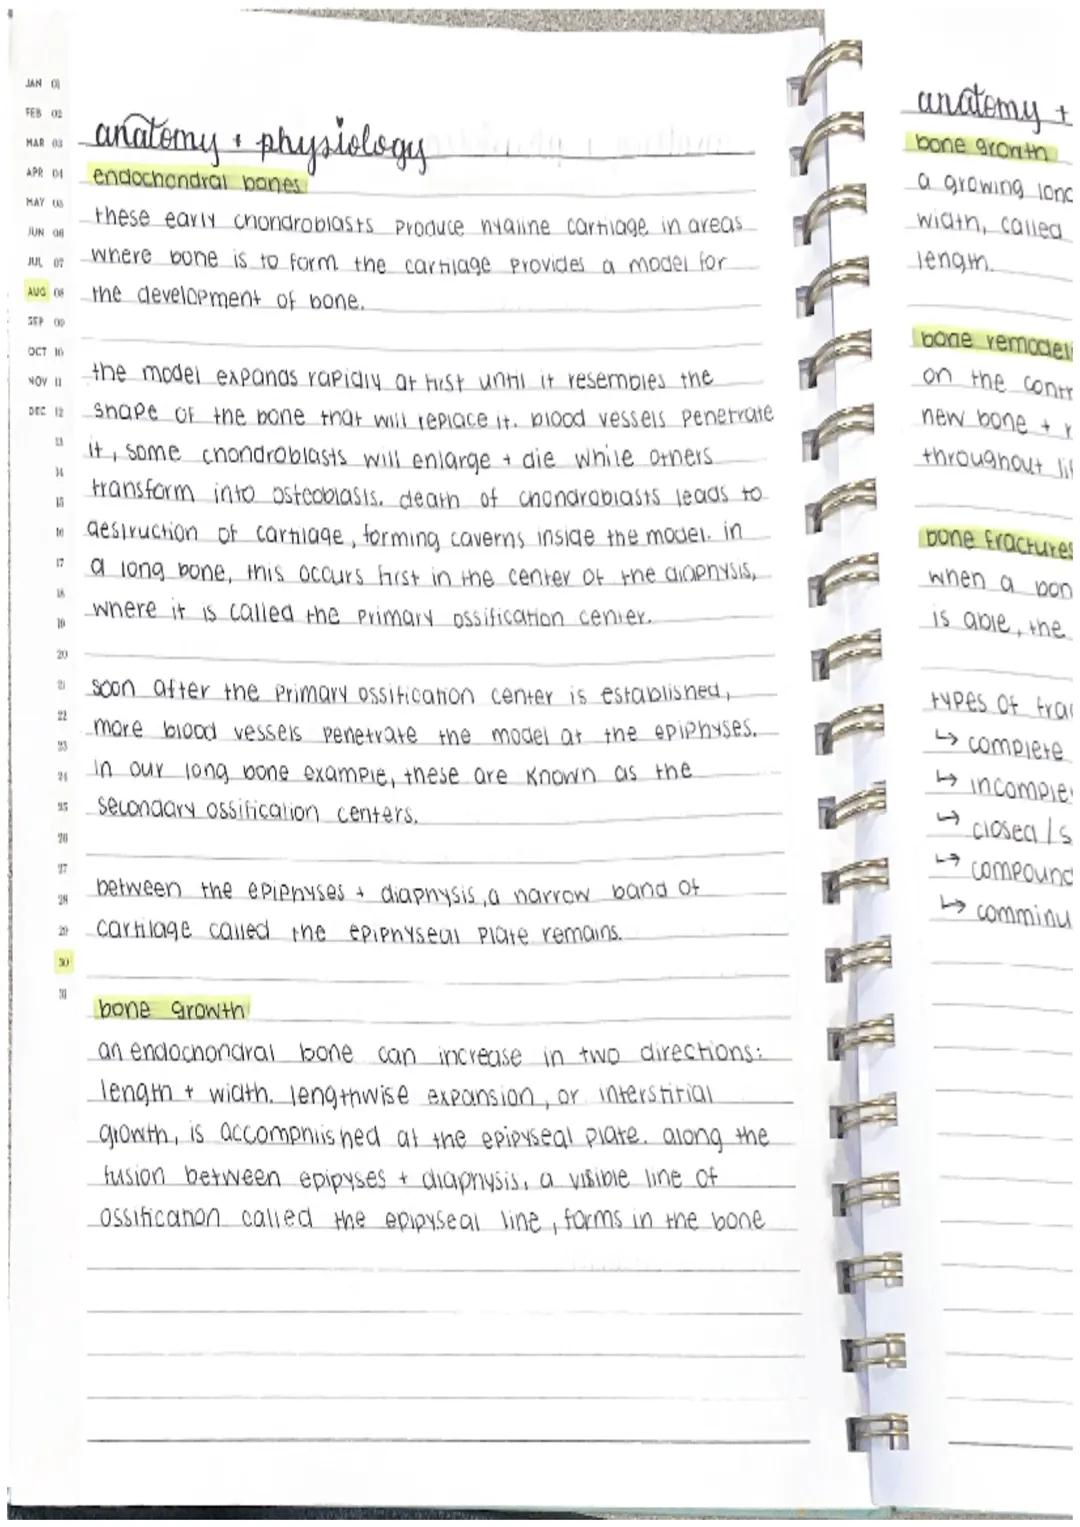 JAN 01
FEB 02
MAR 03
APR 04
MAY 05
JUN 06
JUL 07
AUG 08
SEP 09
OCT 10
NOV 11
DEC 12
13
14
15
16
17
18
19
20
21
22
23
24
25
26
27
28
29
30
31
anatomy + physiology
endochondral bones
these early chondroblasts produce hyaline cartilage in areas
where bone is to form the cartilage provides a model for
the development of bone.
the model expands rapidly at first until it resembles the
shape of the bone that will replace it. blood vessels penetrate
it, some chondroblasts will enlarge + die while others
transform into osteoblasts. death of chondroblasts leads to
destruction of cartilage, forming caverns inside the model. in
a long bone, this occurs first in the center of the diaphysis,
where it is called the primary ossification center.
soon after the primary ossification center is established,
more blood vessels penetrate the model at the epiphyses.
in our long bone example, these are known as the
secondary ossification centers.
between the epiphyses + diaphysis, a narrow band of
cartilage called the epiphyseal plate remains.
bone growth
an endochondral bone can increase in two directions:
length + width. lengthwise expansion, or interstitial
growth, is accomplished at the epipyseal plate. along the
fusion between epipyses + diaphysis, a visible line of
ossification called the epipyseal line, forms in the bone
anatomy +
bone growth
a growing long
width, called
length.
bone remodeli
on the contr
new bone + r
throughout lif
bone fractures
when a bon
is able, the
types of frac
↳ complete
↳ incomple
↳ closed / s
↳ compound
↳ comminu